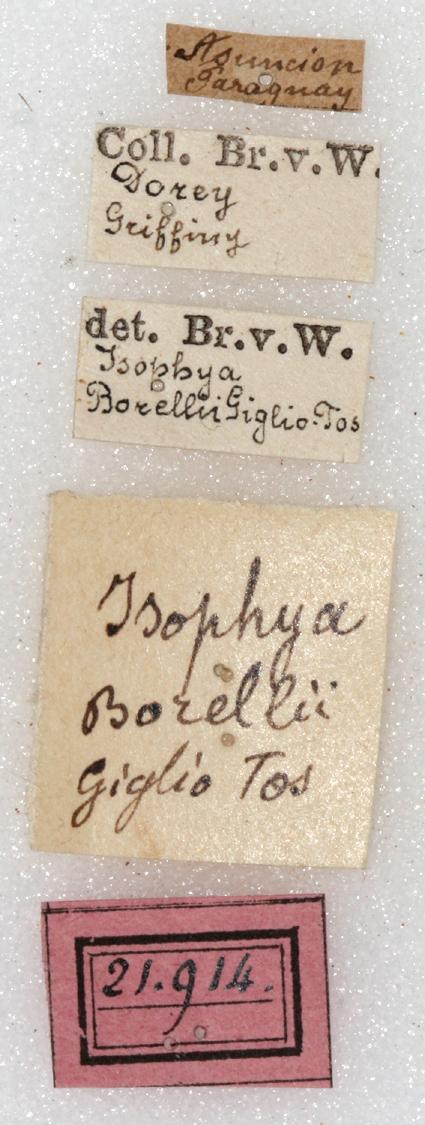 Asuncion
Paraguay
Coll. Br.v.W.
Dorey
Griffiny
det. Br.v.W.
Isophya
Borellii Giglio-Tos
Isophya
Borellii
Giglio Tos
21.914.